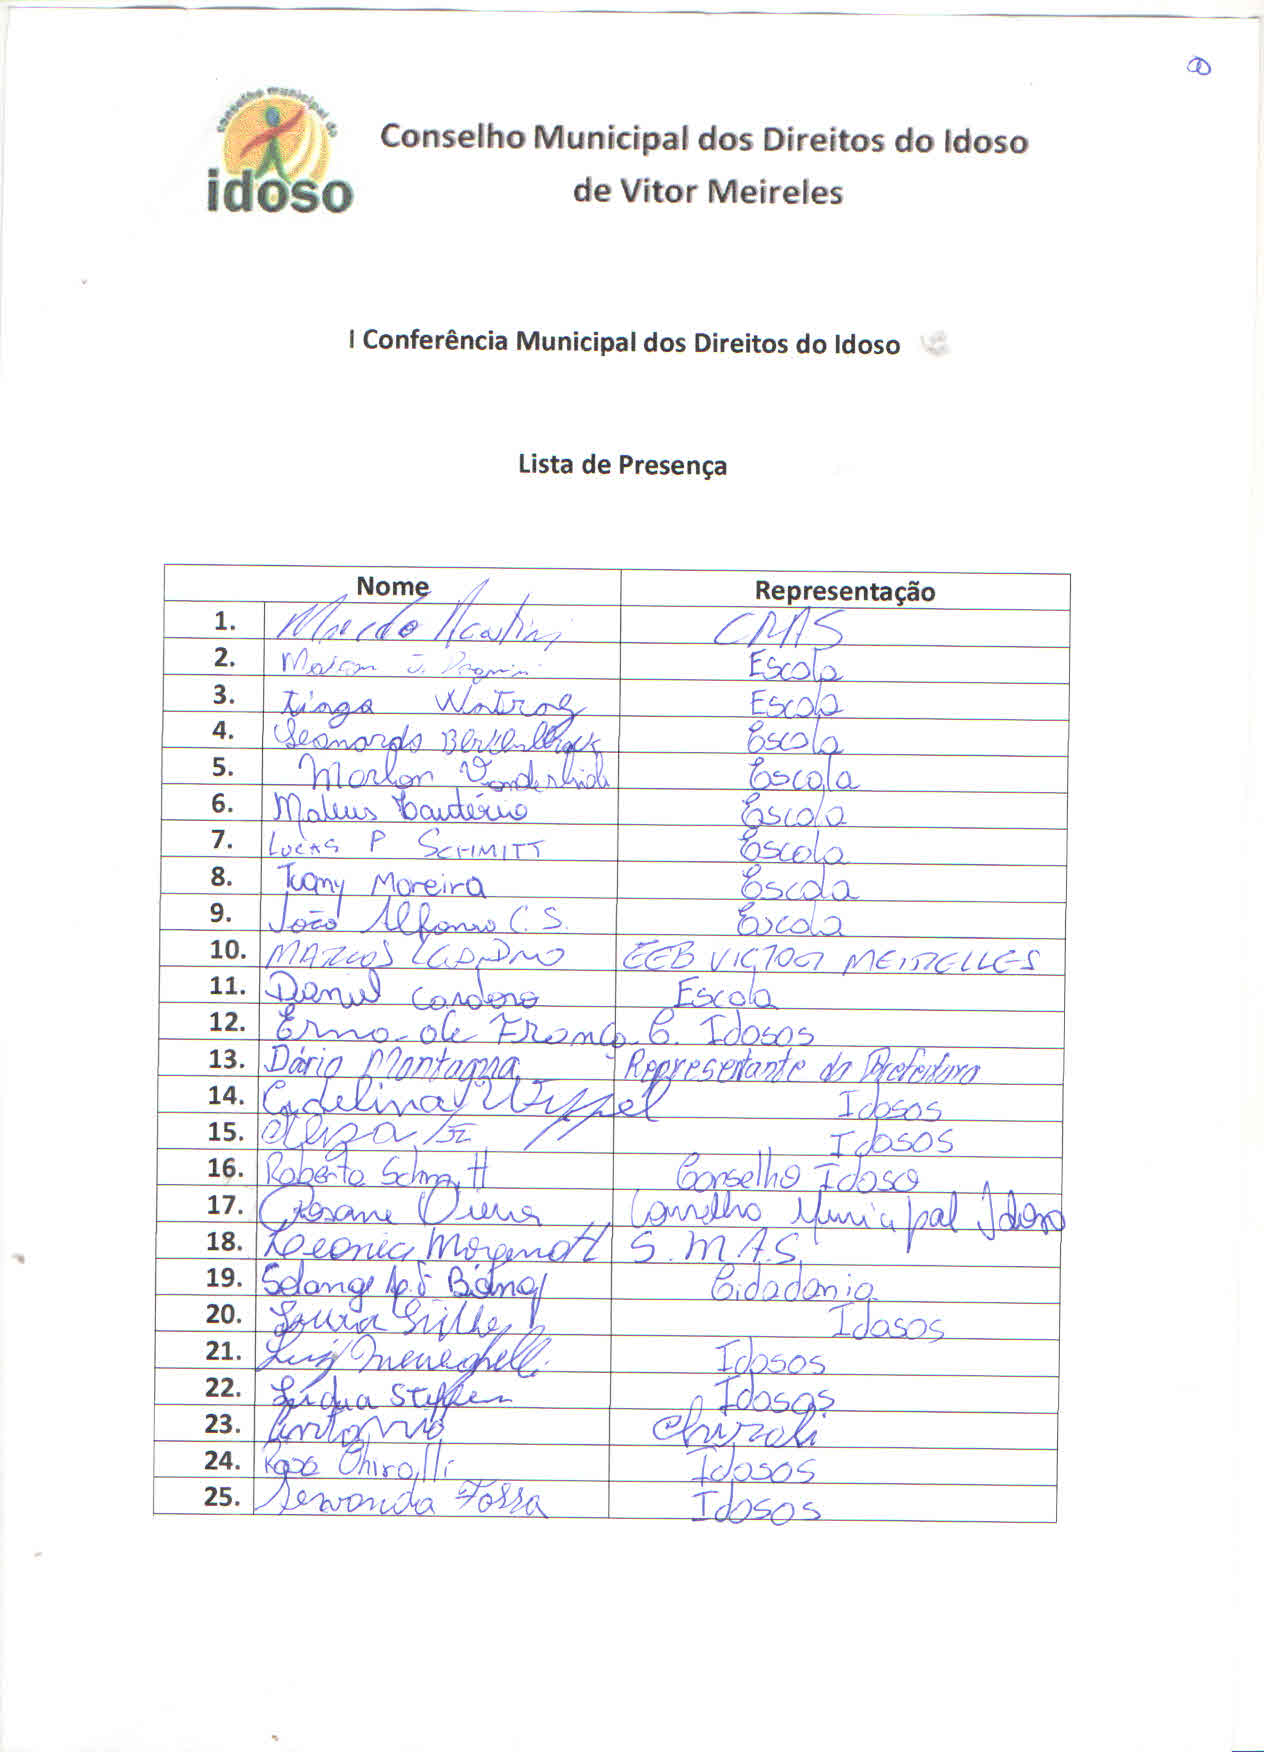 conselho municipal do
idoso
Conselho Municipal dos Direitos do Idoso
de Vitor Meireles
I Conferência Municipal dos Direitos do Idoso
Lista de Presença
Nome Representação
1. CRAS
2. Escola
3. Tiago Escola
4. Leonardo Escola
5. Marlon Escola
6. Mateus Eautério Escola
7. Lucas P Schmitt Escola
8. Tuany Moreira Escola
9. João Alfonso C. S. Escola
10. MARCOS EEB VICTOR MEIRELLES
11. Daniel Cardoso Escola
12. Erno de França C. Idosos
13. Dário Montagna Representante da Prefeitura
14. Adelina Wippel Idosos
15. Idosos
16. Roberto Schmitt Conselho Idoso
17. Rosane Conselho Municipal Idoso
18. Leonida S.M.A.S.
19. Solange Ap. Cidadania
20. Idosos
21. Luiz Meneghelli Idosos
22. Steffen Idosos
23. Antonio Chirali
24. Rosa Chiralli Idosos
25. Idosos